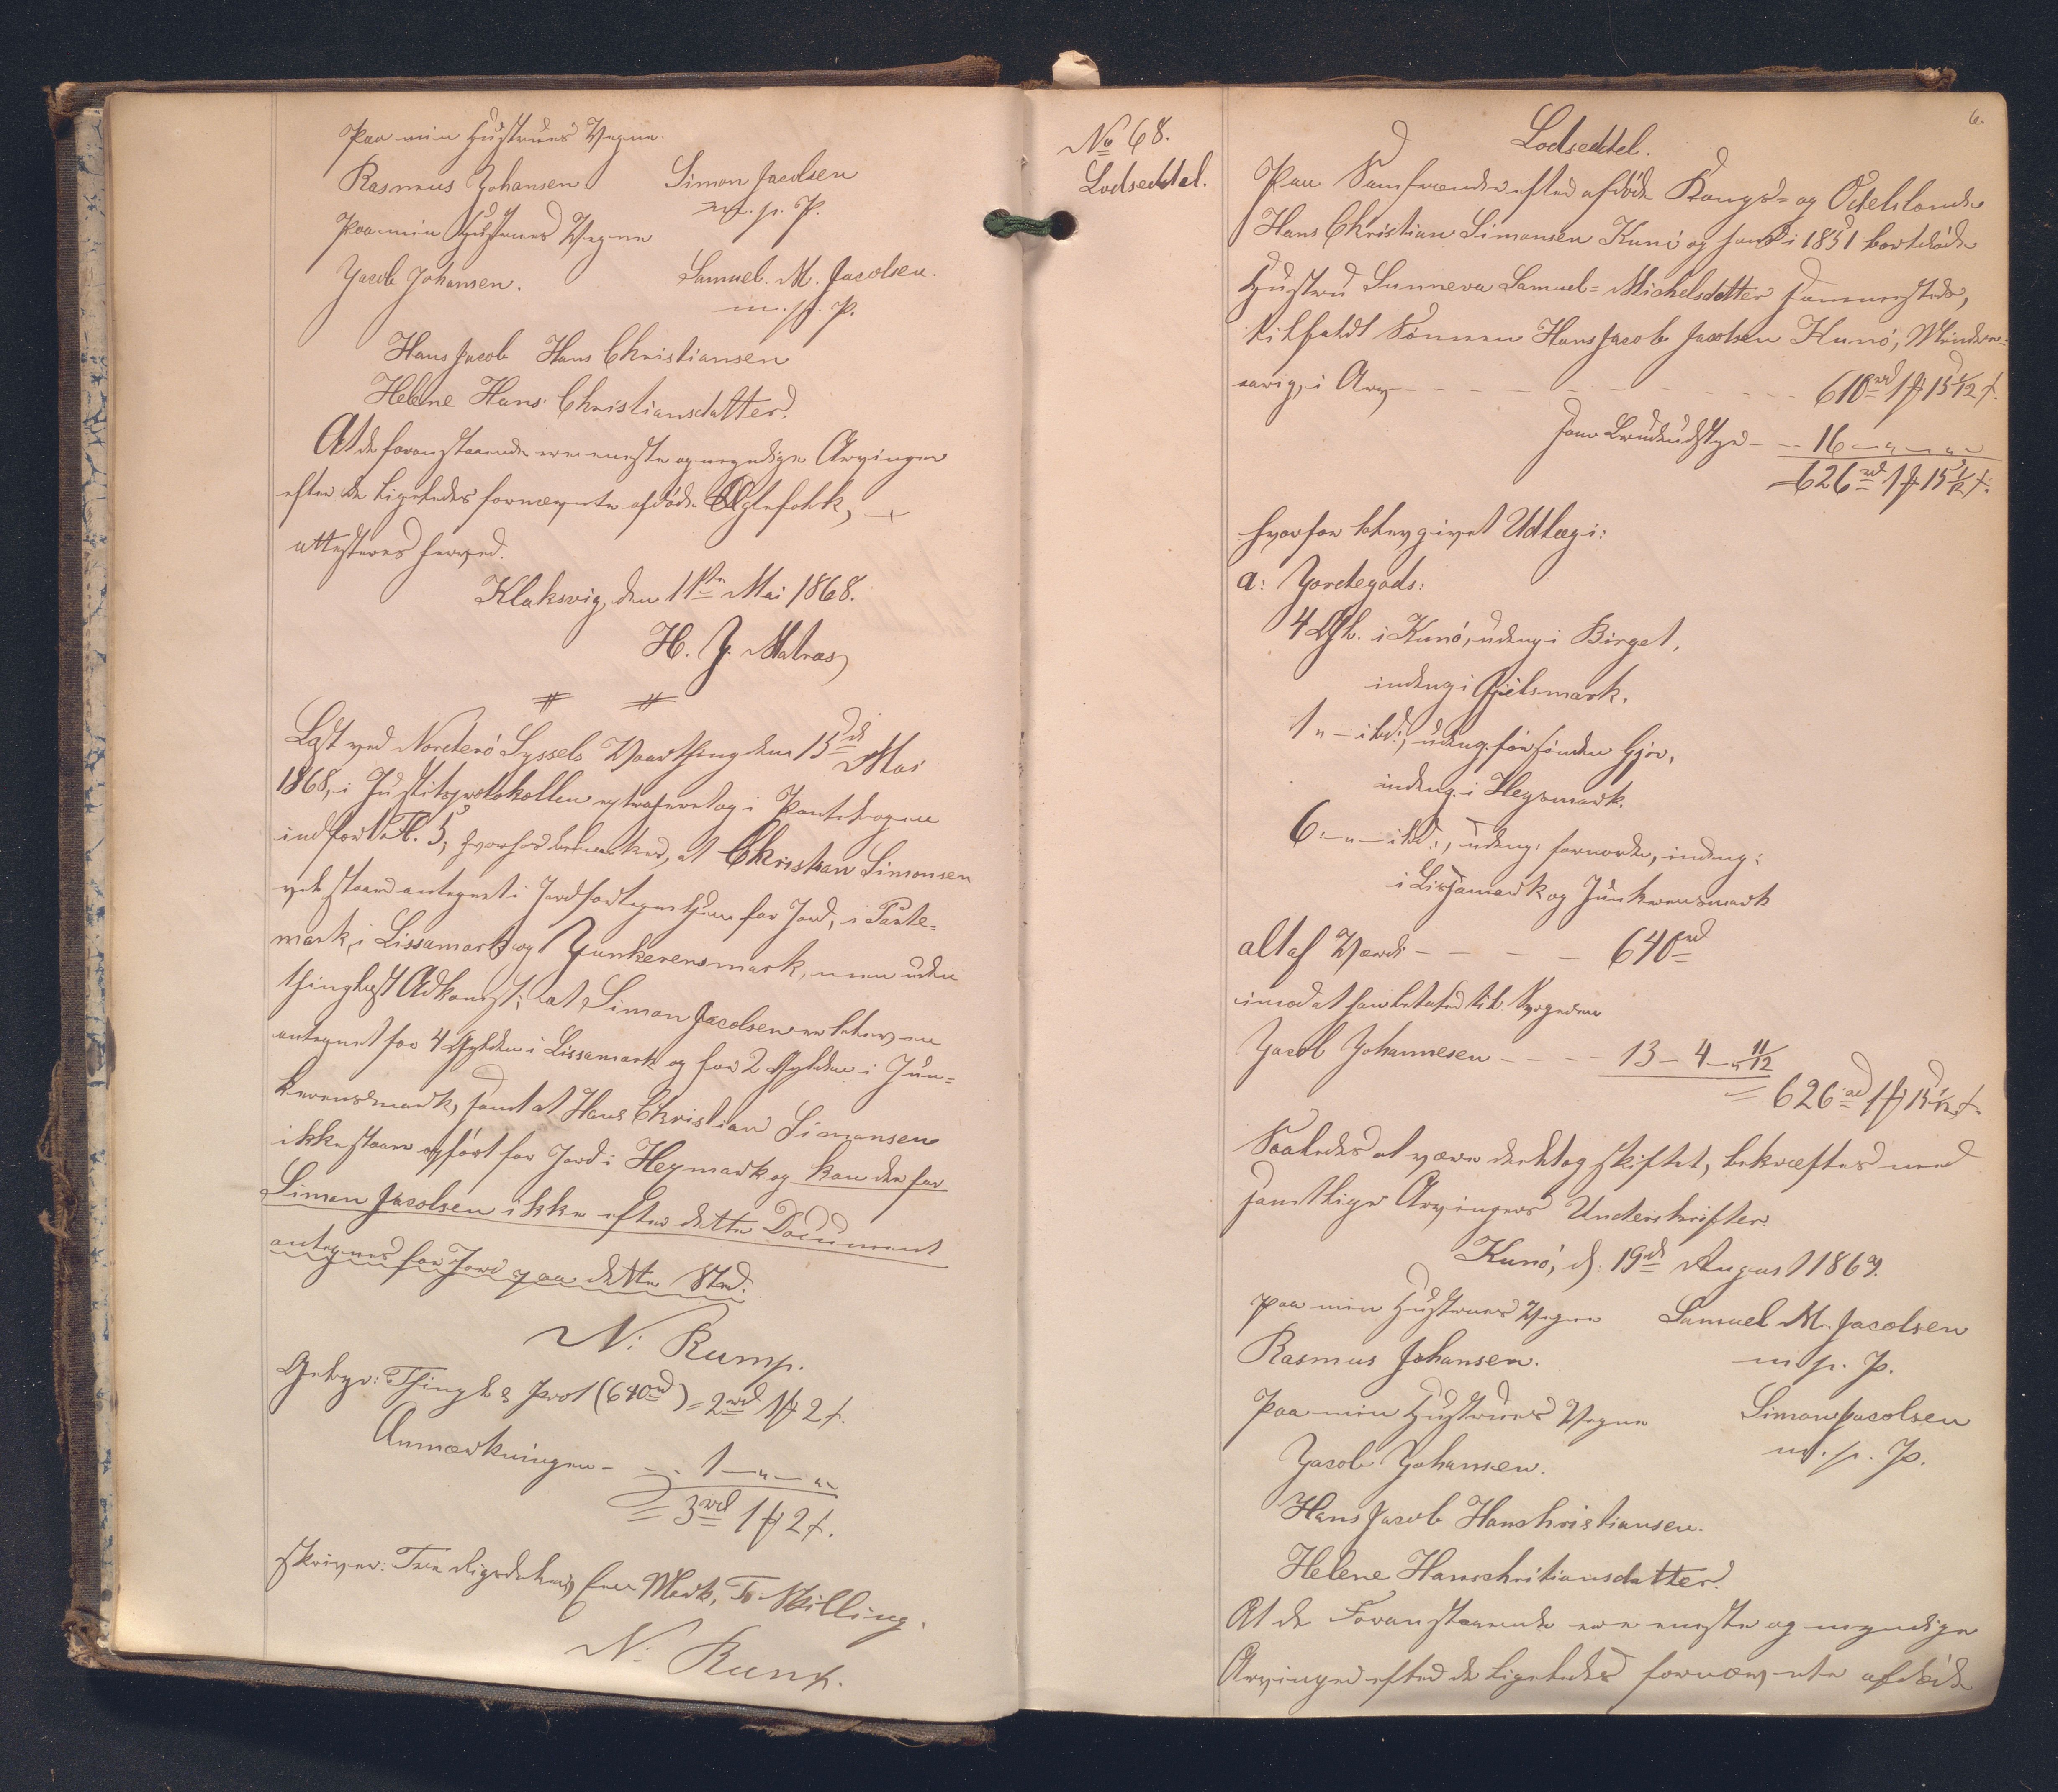 Paa min Hustrues Vegne.
Rasmus Johansen Simon Jacobsen
m. p. P.
Paa min Hustrues Vegne
Jacob Johansen. Samuel M. Jacobsen.
m. p. P.
Hans Jacob Hans Christiansen
Helene Hans Christiansdatter.
At de foranstaaende ere eneste og myndige Arvinger
efter de ligeledes fornævnte afdøde Ægtefolk,
attesteres herved.
Klaksvig, den 11te Mai 1868.
H. J. Matras
Læst ved Norderø Syssels Vaarthing den 15de Mai
1868, i Justitsprotokollen extraheret og i Pantebogen
indført Fol. 5, hvorhos bemærkes, at Christian Simonsen
vel staaer antegnet i Jordfortegnelsen for Jord, i
mark, i Lissamark og Junkerensmark, men uden
thinglæst Adkomst; at Simon Jacobsen er bleven
antegnet for 4 Gylden i Lissamark og for 2 Gylden i Jun-
kerensmark, samt at Hans Christian Simonsen
ikke staaer opført for Jord i Heymark og kan derfor
Simon Jacobsen ikke efter dette Document
antegnes for Jord paa dette Sted.
N. Rump.
Gebyr: Thingl & Prot (640rd) = 2rd 1 ₻ 2 ß.
Anmærkningen - - - 1 - " - "
= 3rd 1 ₻ 2 ß.
skriver: Tre Rigsdaler, Een Mark, To Skilling.
N. Rump.
6.
No 68.
Lodseddel.
Lodseddel.
Paa Samfrændeskifte efter afdøde Kongs- og Odelsbonde
Hans Christian Simonsen Kunø og hans i 1851 bortdøde
Hustru Sunneva Samuel-Michelsdatter sammesteds,
tilfaldt Sønnen Hans Jacob Jacobsen Kunø, Minder-
aarig, i Arv - - - - - - 610rd 1 ₻ 15 1/12 ß.
som Brudeudstyr - - 16 - " - "
626rd 1 ₻ 15 1/12 ß.
hvorfor blev givet Udlæg i:
a: Jordegods:
4 Gl. i Kunø, udeng i Birget,
indeng i Gjilsmark.
1 " - ibd:, udeng. for sønden Gjov,
indeng. i Heysmark.
6 : - " - ibd:, udeng: fornorden, indeng:
i Lissamark og Junkerensmark
alt af Værdi - - - - 640rd
imod at han betaler til Svogeren
Jacob Johannesen - - - - 13 - 4 - " 11/12
= 626rd 1 ₻ 15 1/12 ß.
Saaledes at være deelt og skiftet, bekræftes med
samtlige Arvingers Underskrifter.
Kunø, d: 19de August 1867.
Paa min Hustrues Vegne Samuel M. Jacobsen
Rasmus Johansen. m. p. P.
Paa min Hustrues Vegne Simon Jacobsen
Jacob Johansen. m. p. P.
Hans Jacob Hanschristiansen.
Helene Hanschristiansdatter.
At de Foranstaaende ere eneste og myndige
Arvinger efter de ligeledes fornævnte afdøde